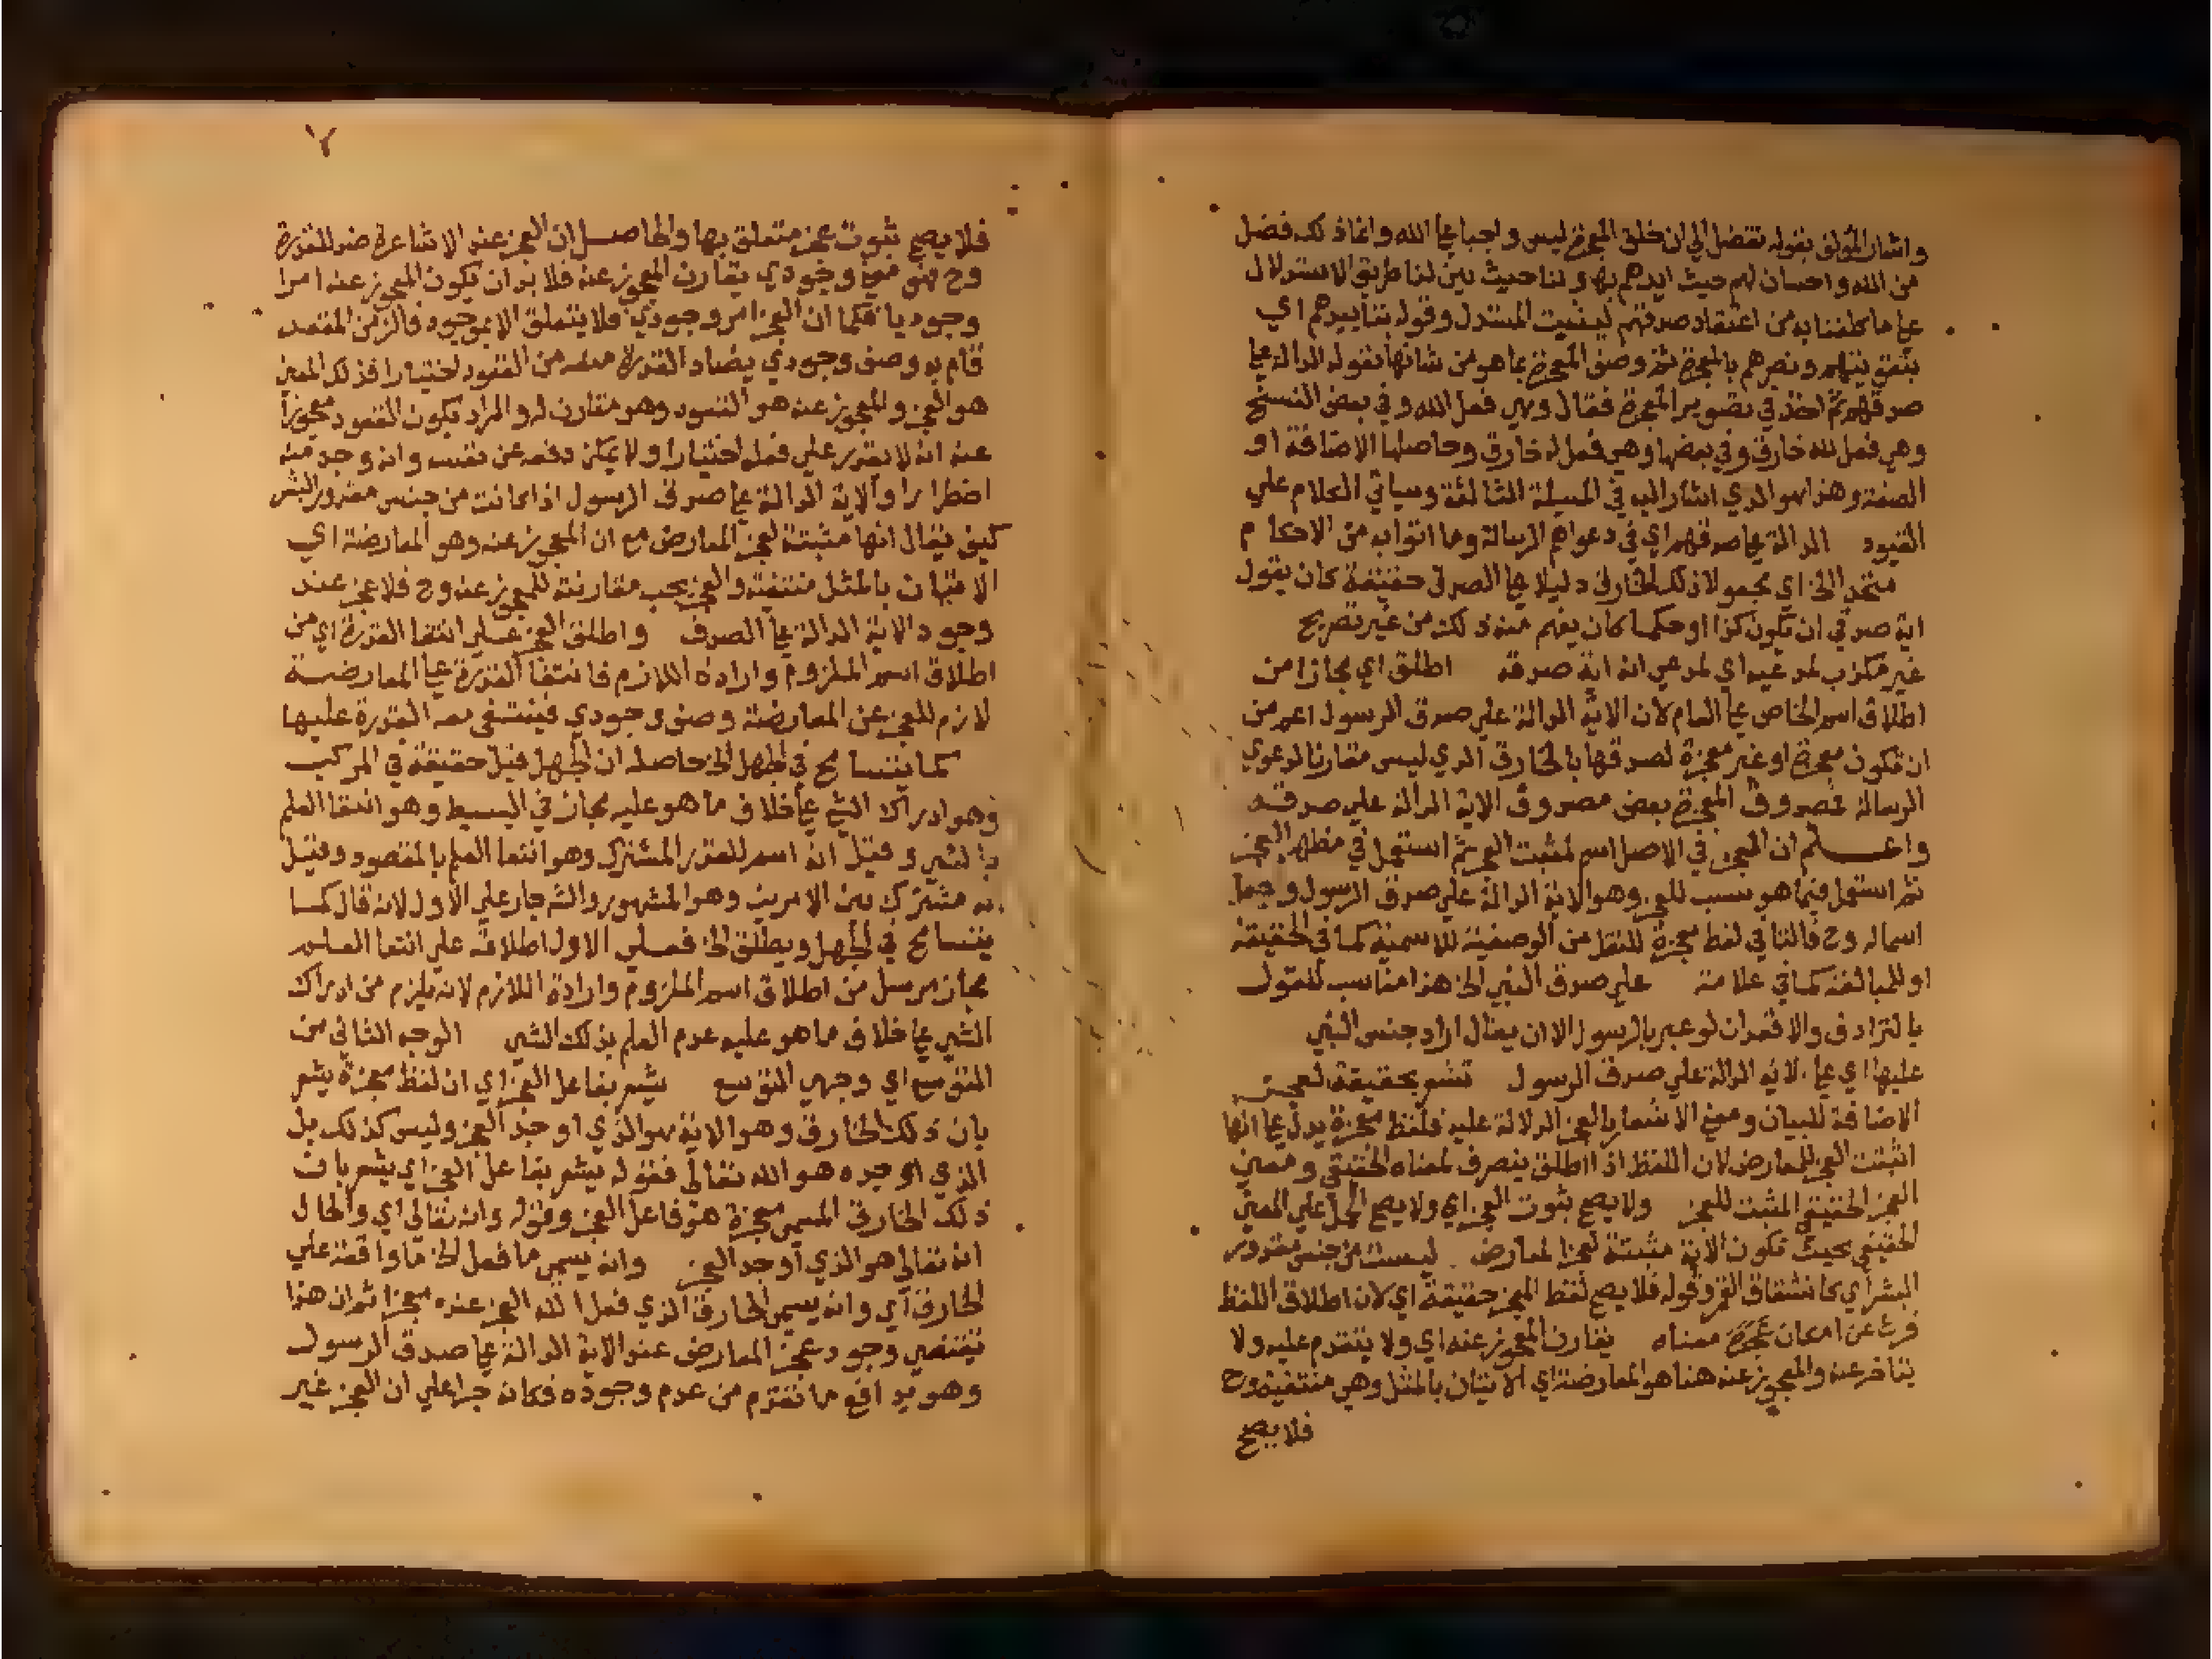 واشار المؤلف بقوله تفضل الي ان خلق المعجزة ليس واجبا علي الله وانما ذلك فضل
من الله واحسان لهم حيث ايدهم بها ولنا حيث بين لنا طريق الاستدلال
علي ما كلفنا به من اعتقاد صدقهم المستدل وقوله بتاييدهم اي
بتقويتهم ونصرهم بالمعجزة ثم وصف المعجزة بما هو من شانها بقوله الدالة علي
صدقهم ثم اخذ في تصوير المعجزة فقال وهي فعل الله وفي بعض النسخ
وهي فعل لله خارق وفي بعضها وهي فعل له خارق وحاصلها الاضافة او
الصفة وهذا هو الذي اشار اليه في المسيلة الثالثة وسياتي الكلام علي
القيود الدالة علي صدقهم اي في دعواهم الرسالة وما اتوا به من الاحكام
متحدي الخ اي يجعلوا ذلك الخارق دليلا علي الصدق حقيقة كان يقول
اية صدقي ان يكون كذا او حكما كان يفهم منه ذلك من غير تصريح
غير مكذب لمدعيه اي لمدعي انه اية صدقه اطلق اي مجازا من
اطلاق اسم الخاص علي العام لان الاية الدالة علي صدق الرسول اعم من
ان تكون معجزة او غير معجزة لصدقها بالخارق الذي ليس مقارنا لدعوي
الرسالة فمصدوق المعجزة بعض مصدوق الاية الدالة علي صدقه
واعلم ان المعجز في الاصل اسم لمثبت العجز ثم استعمل في مظهر العجز
ثم استعمل فيما هو سبب للعجز وهو الاية الدالة علي صدق الرسول وجعل
اسما له وح فالتا في لفظ معجزة للنقل من الوصفية للاسمية كما في الحقيقة
او للمبالغة كما في علامة علي صدق النبي الخ هذا مناسب للقول
بالترادف والا فقد ان لو عبر بالرسول الا ان يقال اراد جنس النبي
عليها اي علي الاية الدالة علي صدق الرسول تشعر بحقيقة العجز
الاضافة للبيان ومعني الاشعار بالعجز الدلالة عليه فلفظ معجزة يدل علي انها
اثبتت العجز للمعارض لان اللفظ اذا اطلق ينصرف لمعناه الحقيقي ومعني
العجز الحقيقي المثبت للعجز ولا يصح ثبوت العجز اي ولا يصح الحمل علي المعني
الحقيقي بحيث تكون الاية مثبتة لعجز المعارض ليست من جنس مقدور
البشر اي كانشقاق القمر وقوله فلا يصح لفظ المعجز حقيقة اي لان اطلاق اللفظ
فرع عن امكان معناه يقارن المعجوز عنه اي ولا يتقدم عليه ولا
يتاخر عنه والمعجوز عنه هنا هو المعارضة اي الاتيان بالمثل وهي منتفية وح
فلا يصح
٧
فلا يصح ثبوت عجز متعلق بها والحاصل ان العجز عند الاشاعرة ضد للقدرة
وح فهو معني وجودي يقارن المعجوز عنه فلا بد ان يكون المعجوز عنه امرا
وجوديا فكما ان العجز امر وجودي فلا يتعلق الا بموجود فالزمن المقعد
قام به وصف وجودي يضاد القدرة منعه من القعود اختيارا فذلك المعني
هو العجز والمعجوز عنه هو القعود وهو مقارن له والمراد بكون القعود معجوزا
عنه انه لا يقدر علي فعله اختيارا ولا يمكن دفعه عن نفسه وان وجد منه
اضطرارا والاية الدالة علي صدق الرسول اذا كانت من جنس مقدور البشر
كيف يقال انها مثبتة لعجز المعارض مع ان المعجوز عنه وهو المعارضة اي
الاتيان بالمثل منتفية والعجز يجب مقارنته للمعجوز عنه وح فلا عجز عند
وجود الاية الدالة علي الصدق واطلق العجز علي انتفا القدرة اي من
اطلاق اسم الملزوم وارادة اللازم فانتفا القدرة علي المعارضة
لازم للعجز عن المعارضة وصف وجودي فينتفي معه القدرة عليها
كما يتسامح في الجهل الخ حاصله ان الجهل قيل حقيقة في المركب
وهو ادراك الشي علي خلاف ما هو عليه مجاز في البسيط وهو انتفا العلم
بالشي وقيل انه اسم للقدر المشترك وهو انتفا العلم بالمقصود وقيل
انه مشترك بين الامرين وهو المشهور والشرح جار علي الاول لانه قال كما
يتسامح في الجهل ويطلق الخ فعلي الاول اطلاقه علي انتفا العلم
مجاز مرسل من اطلاق اسم الملزوم وارادة اللازم لانه يلزم من ادراك
الشي علي خلاف ما هو عليه عدم العلم بذلك الشي الوجه الثاني من
التوسع اي وجهي التوسع يشعر بفاعل العجز اي ان لفظ معجزة يشعر
بان ذلك الخارق وهو الاية هو الذي اوجد العجز وليس كذلك بل
الذي اوجده هو الله تعالي فقوله يشعر بفاعل العجز اي يشعر بان
ذلك الخارق المسمي معجزة هو فاعل العجز وقوله وانه تعالي اي والحال
انه تعالي هو الذي اوجد العجز وانه يسمي ما فعل الخ علي
الخارق اي وانه يسمي الخارق الذي فعل الله العجز عنده معجزا ثم ان هذا
يقتضي وجود عجز المعارض عند الاية الدالة علي صدق الرسول
وهو يدافع ما تقدم من عدم وجوده فكان جرا علي ان العجز غير